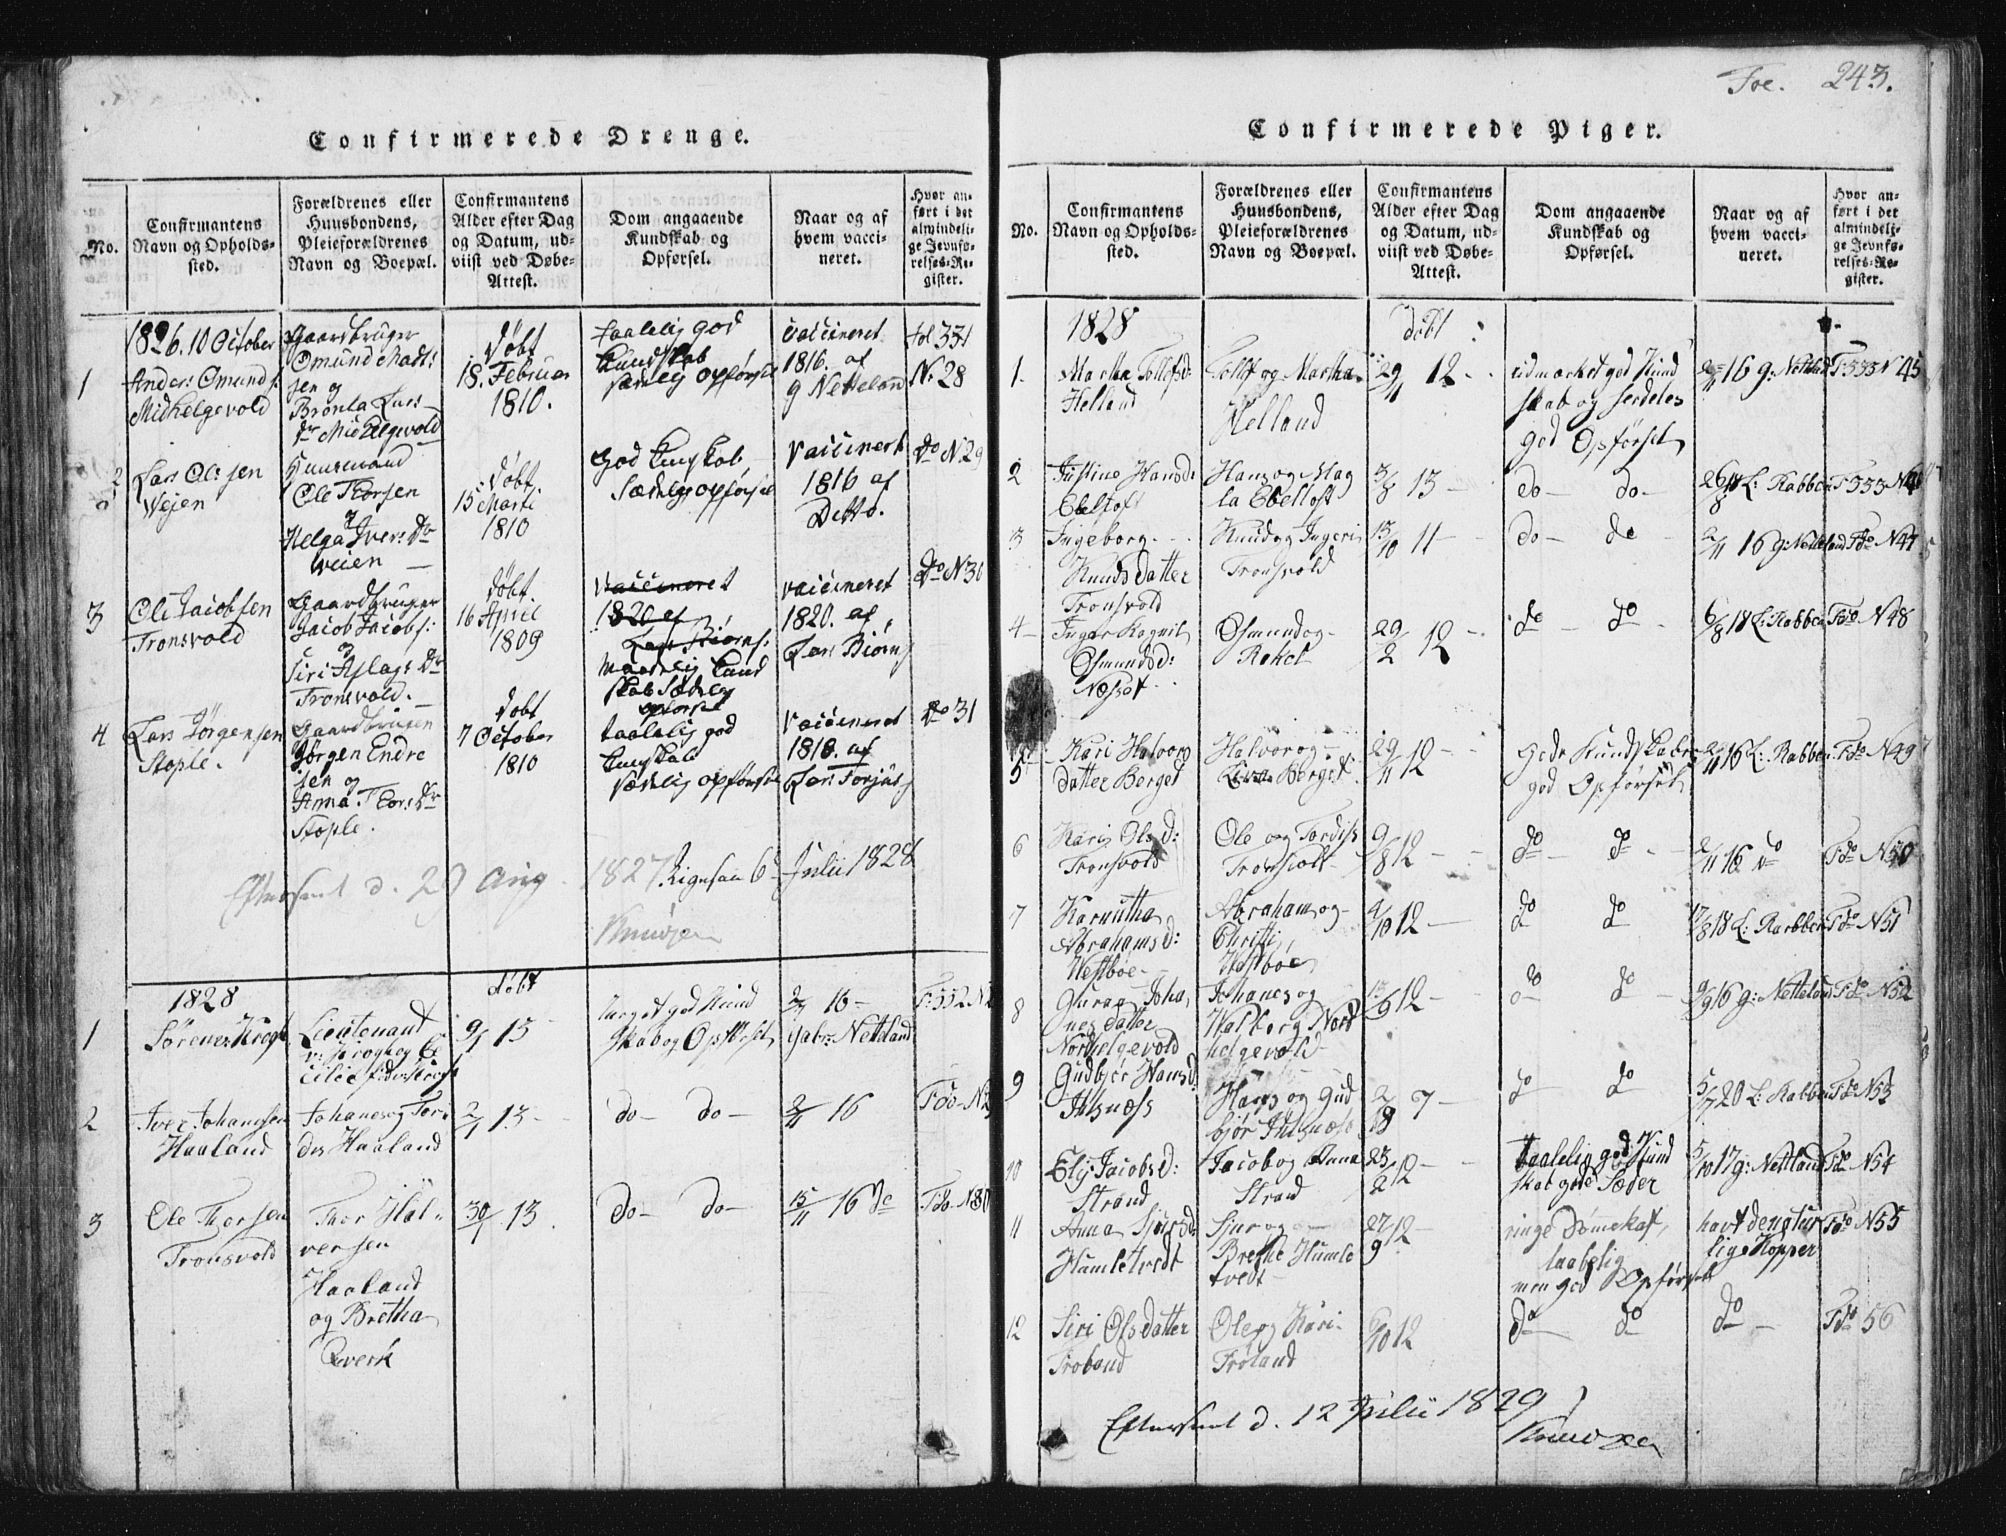 Confirmerede Drenge.
No.
Confirmantens
Navn og Opholds-
sted.
Forældrenes eller
Huusbondens,
Pleieforældrenes
Navn og Boepæl.
Confirmantens
Alder efter Dag
og Datum, ud-
viist ved Døbe-
Attest.
Dom angaaende
Kundskab og
Opførsel.
Naar og af
hvem vacci-
neret.
Hvor an-
ført i det
almindeli-
ge Jevnfø-
relses-Re-
gister.
1826. 10 October
1
Anders Omunds:
Midhelgevold
Gaardbruger
Omund Mads:
sen og
Bronla Lars
Dr Midhelgevold
Døbt
18. Februar
1810.
taalelig god
Kundskab
sædelig opførsel
vaccineret
1816. af
g Netteland
fol 331
Nr 28
2
Lars Ols: sen
Weien
Huusmand
Ole Thorsen
og
Helga Ivers Dr
Weien
Døbt
15 Marti
1810
God Kunskab
Sædelig opførsel
vaccineret
1816 af
Ditto.
Do N. 29
3
Ole Jacobsen
Tronsvold
Gaardbruger
Jacob Jacobs:
og
Siri Aslags Dr
Tronsvold.
Døbt.
16 April
1809
vaccineret
1820 af
Lars Biørns:
Maadelig Kund
skab Sædelig
opførsel
vaccineret
1820. af
Lars Biørns
Do No 30
4
Lars Jørgensen
Stople.
Gaardbruger
Jørgen Endre
sen og
Anna Thors Dr
Stople.
Døbt
7 October
1810
taalelig god
Kunskab
sædelig opførsel
vaccineret
1818. af
Lars Torjus
Do 31
Efterseet d. 29 Aug 1827
6 Julii 1828
Knudsen
1828
døbt
1
Lieutenant
9/1 15
meget god Kund
skab og Opførsel
2/11 16
Gabr: Netteland
F: 332 N
2
Iver Johansen
Haaland
Johanes og Tor
des Haaland
2/1 13
do do
2/11 16
F do N 29
3
Ole Thorsen
Tronsvold
Thor Hal-
versen
Haaland
og Bretha
Qverk
30/1 13
do do
15/11 16 do
F do N 30
Foe. 243.
Confirmerede Piger.
No.
Confirmantens
Navn og Opholds-
sted.
Forældrenes eller
Huusbondens,
Pleieforældrenes
Navn og Boepæl.
Confirmantens
Alder efter Dag
og Datum, ud-
viist ved Døbe-
Attest.
Dom angaaende
Kundskab og
Opførsel.
Naar og af
hvem vacci-
neret.
Hvor an-
ført i det
almindeli-
ge Jevnfø-
relses-Re-
gister.
1828
døbt
1.
Martha Tollefsd:
Helland
Tollef og Martha
Helland
29/11 12
udmærket god Kund
skab og serdeles
god Opførsel
2/11 16 g: Netteland
F: 333 N 45
2
Justine Hansd:
Ebeltoft
Hans og Mag
la Ebeltoft
3/8 13
do do
26/8 L: Rabben
F 333 N 46
3
Ingeborg
Knudsdatter
Tronsvold
Knud og Ingeri
Tronsvold
13/10 11
do do
2/11 16 g: Netteland
F do N 47
4
Inger Ragnil
Osmundsd:
Næsset
Osmund og
Rakel
29/2 12
do do
6/8 18 L: Rabben
F do N 48
5
Kari Halvors
datter Berget
Halvor og
Berget
29/11 12
Gode Kundskaber
god Opførsel
2/11 16 L: Rabben
F do N 49
6
Karis Olsd:
Tronsvold
Ole og Tordiss
Tronsvolt
9/8 12
do do
2/11 16 do
F do N 50
7
Karnutha
Abrahamsd:
Westbøe
Abraham og
Christi
Westbøe
4/10 12
do do
17/8 18 L: Rabben
F do N 51
8
Guroe Joha
nes datter
Nordhelgevold
Johanes og
Walborg Nord
helgevold
15/9 12
do do
9/9 16 g: Netteland
F do N 52
9
Gudbjør Hansd:
Julsnæss
Hans og Gud
bjør Julsnæss
2/8 7
do do
5/7 20 L: Rabben
F do N 53
10
Elj Jacobsd:
Strand
Jacob og Anna
Strand
23/2 12
taalelig god Kund
skab gode Sæder
5/10 17 g: Netteland
F do N 54
11
Anna Sjursd
Humletvedt
Sjur og
Brethe Humle
tvedt
27/9 12
ringe Dømekaft,
men god Opførsel
havt de natur
lige Kopper
F do N 55
12
Siri Olsdatter
Froland
Ole og Kari
Froland
6/10 12
do do
do
F do 56
Efterseet d. 12 Julii 1829
Knudsen